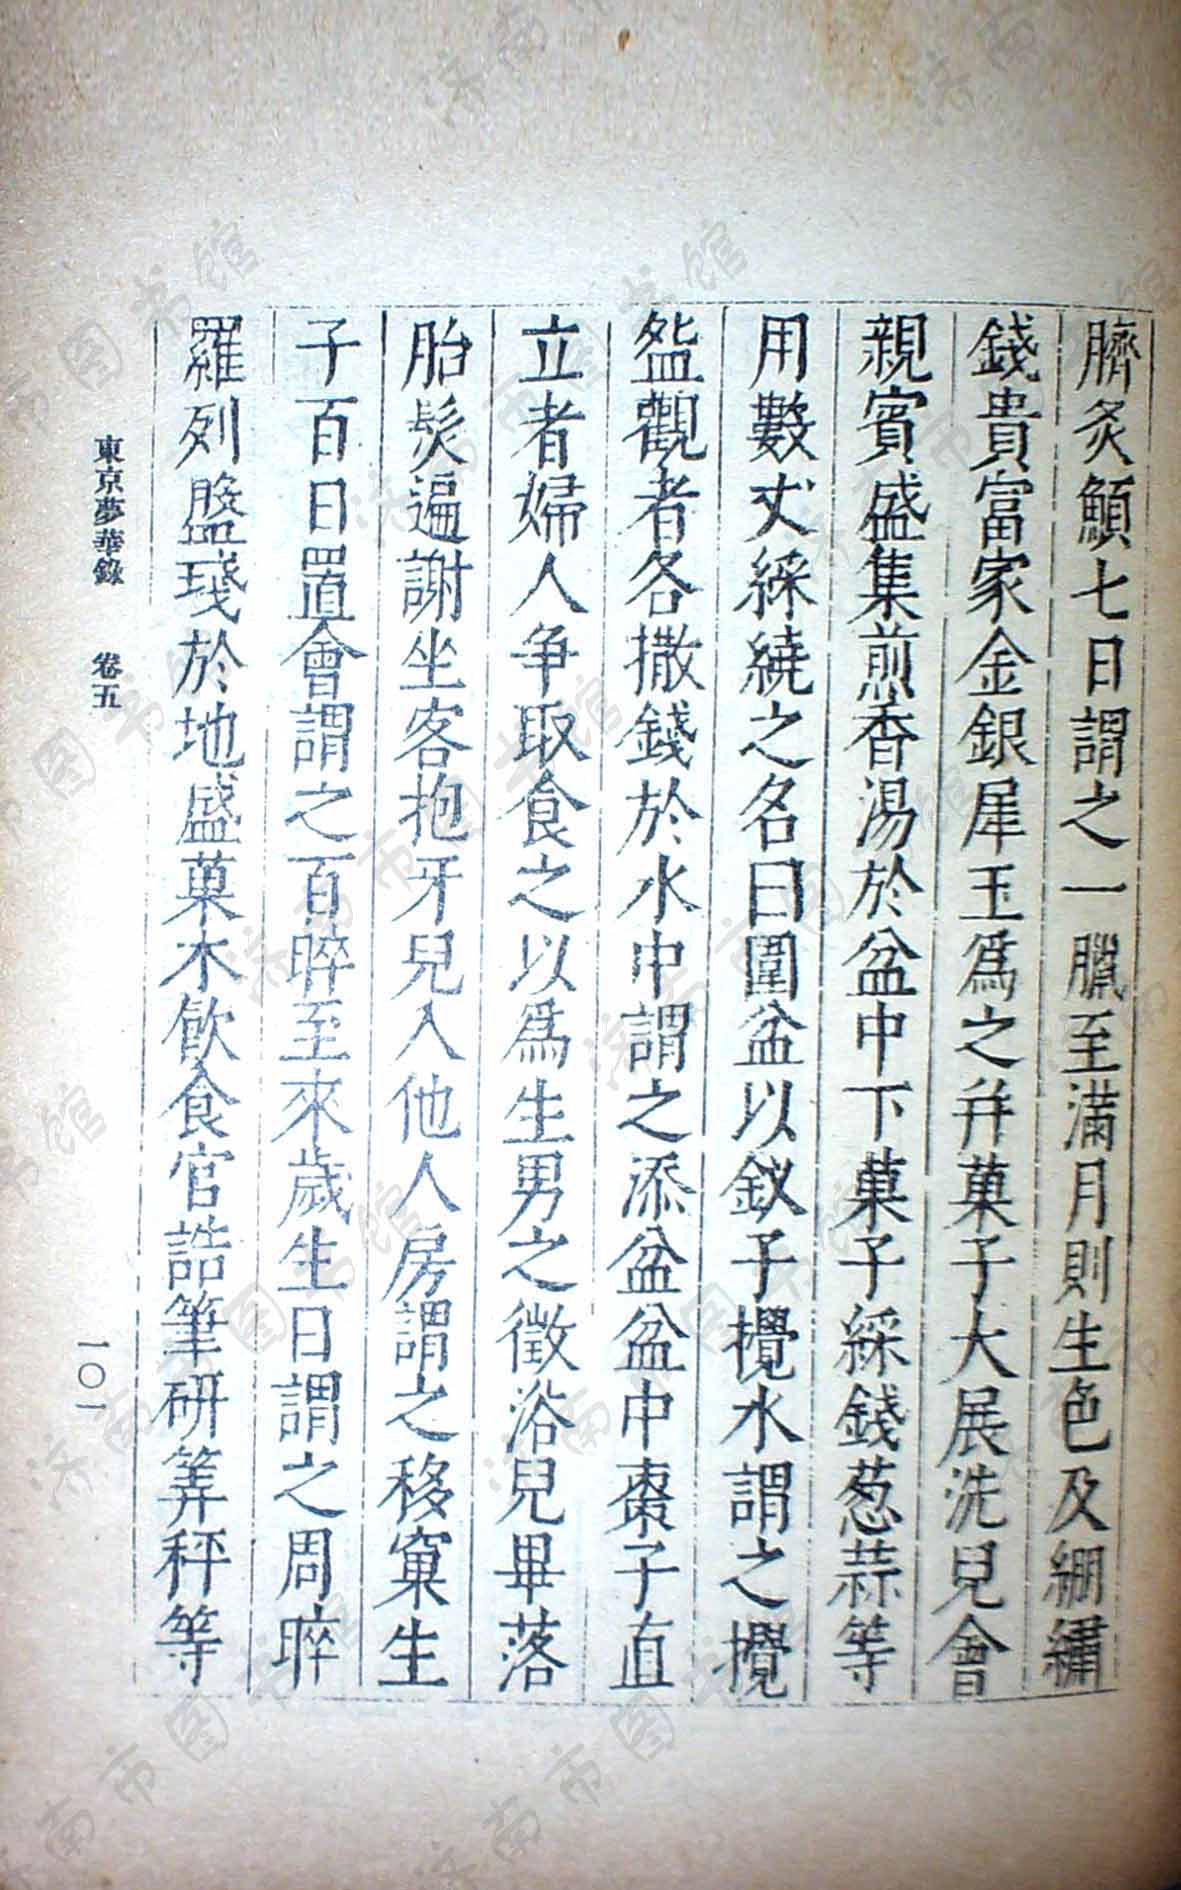 臍炙顖七日謂之一臘至滿月則生色及綳繡
錢貴富家金銀犀玉爲之幷菓子大展洗兒會
親賓盛集煎香湯於盆中下菓子綵錢葱蒜等
用數丈綵繞之名曰圍盆以釵子攪水謂之攪
盆觀者各撒錢於水中謂之添盆盆中棗子直
立者婦人争取食之以爲生男之徵浴兒畢落
胎髮遍謝坐客抱牙兒入他人房謂之移窠生
子百日置會謂之百晬至來歲生日謂之周晬
羅列盤琖於地盛菓木飲食官誥筆研筭秤等
東京夢華錄 卷五
一〇一
济南市图书馆